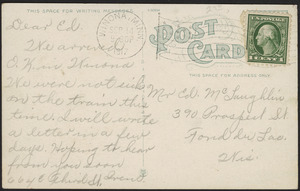 THIS SPACE FOR WRITING MESSAGES
POST CARD
THIS SPACE FOR ADDRESS ONLY
WINONA, MINN.
1 CENT 1
Dear Ed.
We arrived
O.K. in Winona
We were not sick
on the train this
time. I will write
a letter in a few
days. Hoping to hear
from you soon
664 E. Third St.
Mr Ed. McLaughlin
390 Prospect St
Fond du Lac.
Wis.